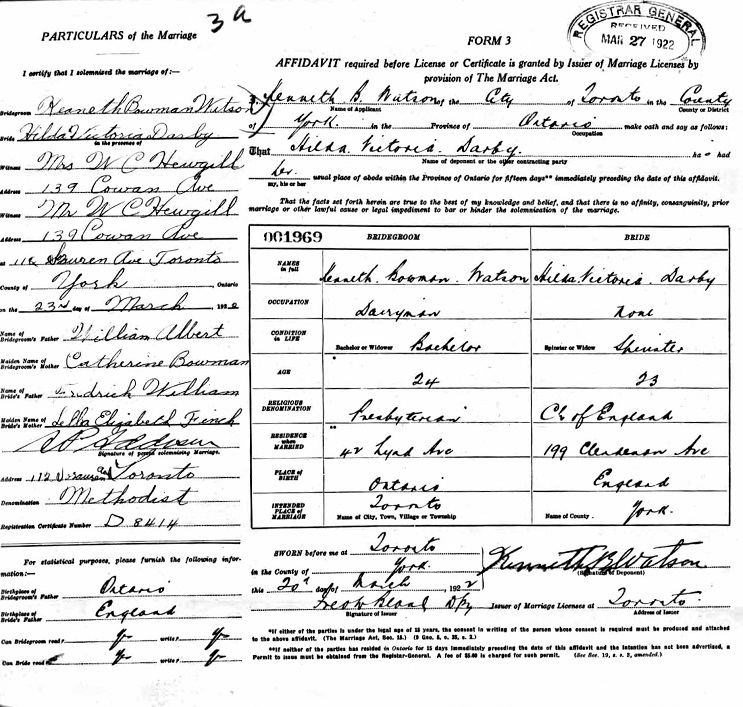 3a
PARTICULARS of the Marriage
I certify that I solemnised the marriage of:—
Bridegroom Kenneth Bowman Watson
Bride Hilda Victoria Darby
in the presence of
Witness Mrs W C Hewgill
Address 139 Cowan Ave
Witness Mr W C Hewgill
Address 139 Cowan Ave
at Ave Toronto
County of York, Ontario
on the 23rd day of March 192
Name of Bridegroom's Father William Albert
Maiden Name of Bridegroom's Mother Catherine Bowman
Name of Bride's Father Fredrick William
Maiden Name of Bride's Mother Elizabeth Finch
Signature of person solemnising Marriage.
Address Toronto
Denomination Methodist
Registration Certificate Number D 8414
For statistical purposes, please furnish the following information:—
Birthplace of Bridegroom's Father Ontario
Birthplace of Bride's Father England
Can Bridegroom read? write?
Can Bride read write?
REGISTRAR GENERAL
RECEIVED
MAR 27 1922
FORM 3
AFFIDAVIT required before License or Certificate is granted by Issuer of Marriage Licenses by
provision of The Marriage Act.
I, Kenneth B. Watson of the City of Toronto in the County
Name of Applicant County or District
of York. in the Province of Ontario make oath and say as follows:
Occupation
That Hilda Victoria Darby. has had
Name of deponent or the other contracting party
her usual place of abode within the Province of Ontario for fifteen days** immediately preceding the date of this affidavit.
my, his or her
That the facts set forth herein are true to the best of my knowledge and belief, and that there is no affinity, consanguinity, prior
marriage or other lawful cause or legal impediment to bar or hinder the solemnisation of the marriage.
001969 BRIDEGROOM BRIDE
NAMES in full Kenneth Bowman Watson Hilda Victoria Darby
OCCUPATION Dairyman None
CONDITION in LIFE Bachelor or Widower Bachelor Spinster or Widow Spinster
AGE * 24 23
RELIGIOUS DENOMINATION Presbyterian Ch of England
RESIDENCE when MARRIED ** 42 Lynd Ave 199 Clendenan Ave
PLACE OF BIRTH Ontario England
INTENDED PLACE OF MARRIAGE Toronto York.
Name of City, Town, Village or Township Name of County
SWORN before me at Toronto
in the County of York Kenneth B Watson
(Signature of Deponent)
this 20th day of March 1922
Dpy Issuer of Marriage Licenses at Toronto
Signature of Issuer Address of Issuer
*If either of the parties is under the legal age of 18 years, the consent in writing of the person whose consent is required must be produced and attached
to the above affidavit. (The Marriage Act, Sec. 15.) (9 Geo. 5, c. 35, s. 2.)
**If neither of the parties has resided in Ontario for 15 days immediately preceding the date of this affidavit and the intention has not been advertised, a
Permit to issue must be obtained from the Registrar-General. A fee of $5.00 is charged for such permit. (See Sec. 19, s. s. 2, amended.)